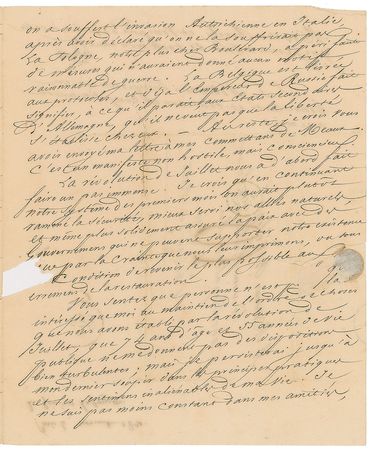 on a souffert l'invasion Autrichienne en Italie,
après avoir déclaré qu'on ne la souffrirait pas
La Pologne, notre plus cher Boulevard, a péri, faute
de mesures qui n'auraient donné aucun motif
raisonnable de guerre. La Belgique est livrée
aux protocoles, et déjà l'Empereur de Russie fait
signifier, à ce qu'il paraît aux Etats secondaires
D'Allemagne, qu'il ne veut pas que la liberté
s'établisse chez eux. — Au reste, je crois vous
avoir envoyé ma lettre à mes commettans de Meaux
C'est un manifeste non hostile, mais consciencieux
La révolution de Juillet nous a d'abord fait
faire un pas immense. Je crois qu'en continuant
notre système des premiers mois on aurait plutôt
ramené la sécurité, mieux servi nos alliés naturels,
et même plus solidement assuré la paix avec des
Gouvernemens qui ne peuvent supporter notre existence
que par la crainte que nous leur imprimons, ou sous
condition de revenir le plus possible au
errements de la restauration.
Vous sentez que personne n'est
intéressé que moi au maintien de l'ordre de choses
que nous avons établi par la révolution de
Juillet, que 74 ans d'âge et 55 années de vie
publique ne me donnent pas des dispositions
bien turbulentes; mais je persisterai jusqu'à
mon dernier soupir dans les principes pratiques
et les sentimens inaliénables de ma vie. Je
ne suis pas moins constant dans mes amitiés,